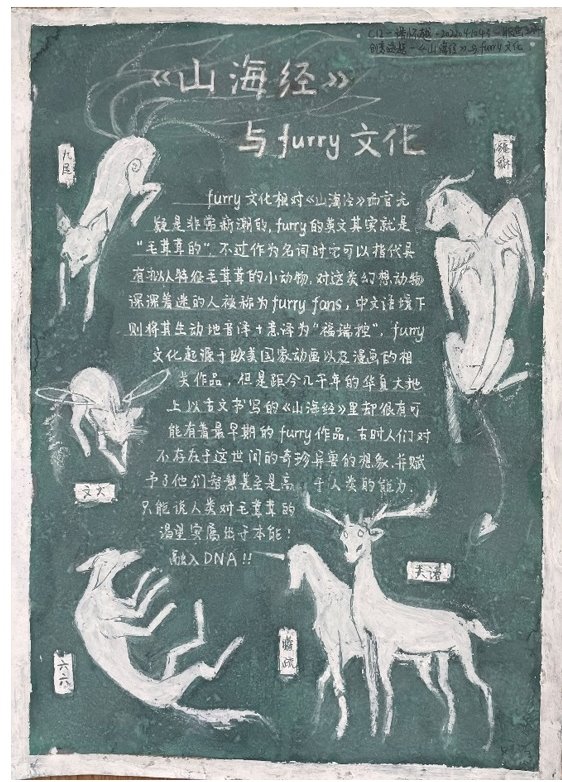 《山海经》
与furry文化
九尾
furry文化相对《山海经》而言无
疑是非常新潮的,furry的英文其实就是
“毛茸茸的”,不过作为名词时它可以指代具
有拟人特征毛茸茸的小动物,对这类幻想动物
深深着迷的人被称为furry fans,中文语境下
则将其生动地音译+意译为“福瑞控”,furry
文化起源于欧美国家动画以及漫画的相
关作品,但是距今几千年的华夏大地
上以古文书写的《山海经》里却很有可
能有着最早期的furry作品,古时人们对
不存在于这世间的奇珍异兽的想象,并赋
予了他们智慧甚至是高于人类的能力,
只能说人类对毛茸茸的
渴望实属出于本能!
融入DNA!!
文犬
夫诸
六六